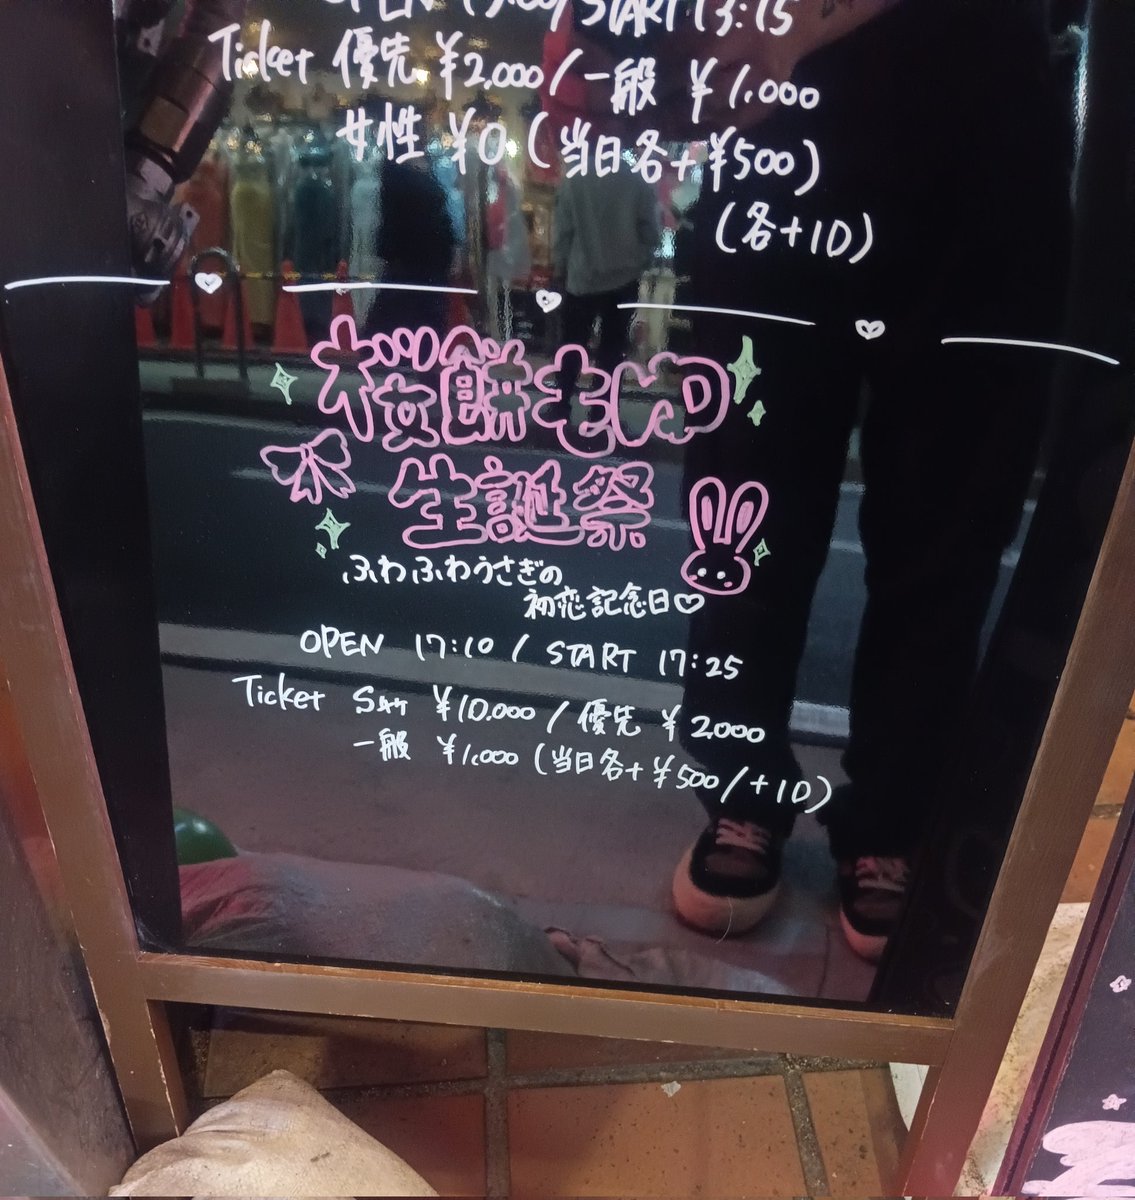 OPEN 13:00/START 13:15
Ticket 優先 ¥2,000/一般 ¥1,000
女性 ¥0(当日各+¥500)
(各+1D)
桜餅もゆ
生誕祭
ふわふわうさぎの
初恋記念日♡
OPEN 17:10 / START 17:25
Ticket S ¥10,000/優先 ¥2000
一般 ¥1,000(当日各+¥500/+1D)